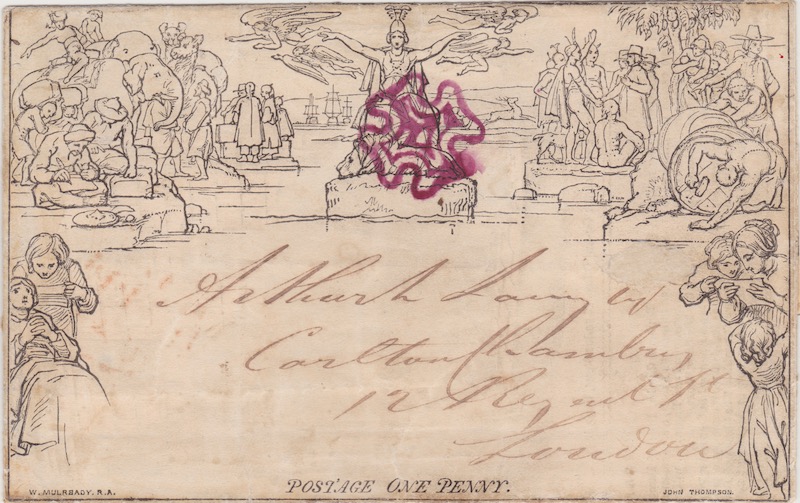 Carlton Chambers
12 Regent St
London
POSTAGE ONE PENNY.
W. MULREADY. R.A.
JOHN THOMPSON.